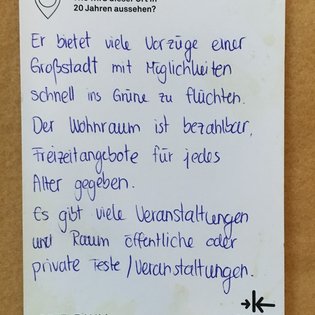 20 Jahren aussehen?
Er bietet viele Vorzüge einer
Großstadt mit Möglichkeiten
schnell ins Grüne zu flüchten.
Der Wohnraum ist bezahlbar,
Freizeitangebote für jedes
Alter gegeben.
Es gibt viele Veranstaltungen
und Raum öffentliche oder
private Feste/Veranstaltungen.